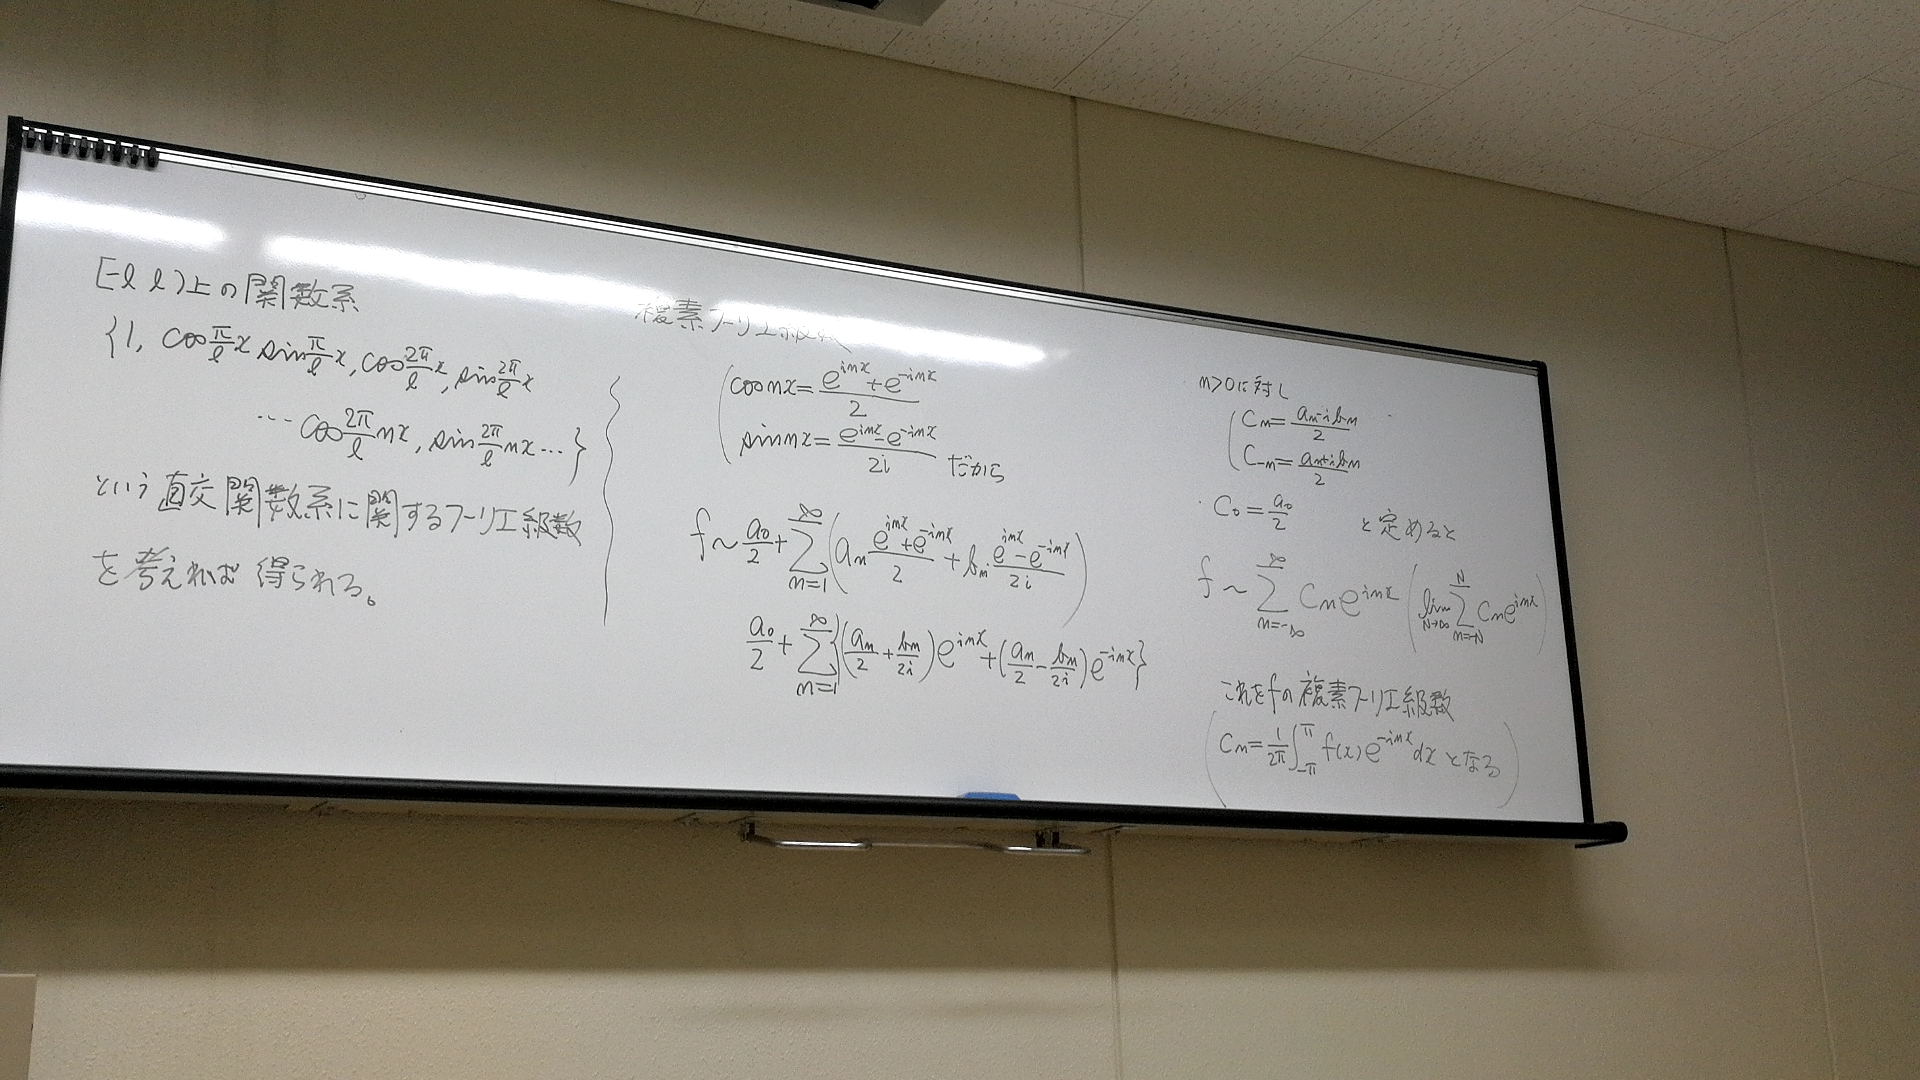 [-l l)上の関数系
{1, cos π/l x sin π/l x, cos 2π/l x, sin 2π/l x
… cos 2π/l nx, sin 2π/l nx …}
という直交関数系に関するフーリエ級数
を考えれば得られる。
複素フーリエ級数
cos nx = (e^{inx} + e^{-inx})/2
sin nx = (e^{inx} - e^{-inx})/2i だから
f ~ a₀/2 + Σ_{n=1}^{∞} (aₙ (e^{inx} + e^{-inx})/2 + bₙ (e^{inx} - e^{-inx})/2i)
a₀/2 + Σ_{n=1}^{∞} {(aₙ/2 + bₙ/2i) e^{inx} + (aₙ/2 - bₙ/2i) e^{-inx}}
n>0に対し
Cₙ = (aₙ - i bₙ)/2
C₋ₙ = (aₙ + i bₙ)/2
C₀ = a₀/2 と定めると
f ~ Σ_{n=-∞}^{∞} Cₙ e^{inx} (lim_{N→∞} Σ_{n=-N}^{N} Cₙ e^{inx})
これをfの複素フーリエ級数
(Cₙ = 1/2π ∫_{-π}^{π} f(x) e^{-inx} dx となる)